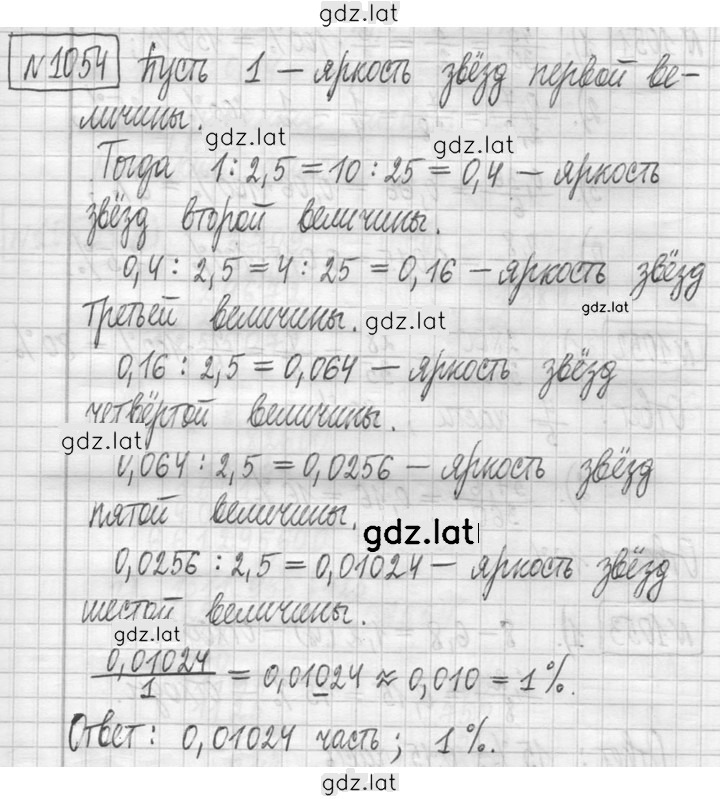 gdz.lat
№1054 Пусть 1 – яркость звёзд первой ве-
личины.
gdz.lat gdz.lat
Тогда 1 : 2,5 = 10 : 25 = 0,4 – яркость
звёзд второй величины.
0,4 : 2,5 = 4 : 25 = 0,16 – яркость звёзд
gdz.lat
третьей величины. gdz.lat
0,16 : 2,5 = 0,064 – яркость звёзд
четвёртой величины.
gdz.lat
0,064 : 2,5 = 0,0256 – яркость звёзд
пятой величины.
gdz.lat
0,0256 : 2,5 = 0,01024 – яркость звёзд
шестой величины.
gdz.lat
0,01024/1 = 0,01024 ≈ 0,010 = 1%.
Ответ: 0,01024 часть; 1%.
gdz.lat